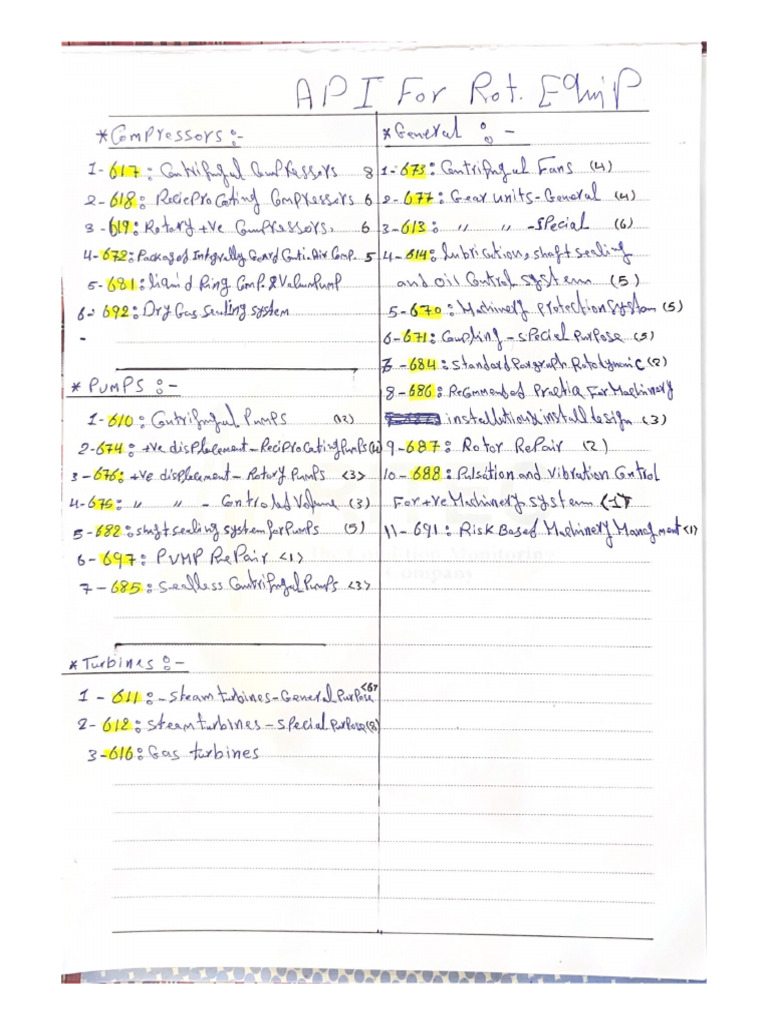 API For Rot. Equip
*Compressors:-
1-617: Centrifugal Compressors 8
2-618: Reciprocating Compressors 6
3-619: Rotary +ve Compressors. 6
4-672: Packaged Integrally Geard Centi. Air Comp. 5
5-681: liquid Ring Comp. & Vacuum Pump
6-692: Dry Gas Sealing system
-
* PUMPS:-
1-610: Centrifugal Pumps (12)
2-674: +ve displacement-Reciprocating Pumps
3-676: +ve displacement-Rotary Pumps <3>
4-675: " " - Controled Volume (3)
5-682: shaft sealing system for Pumps (5)
6-697: PUMP RePair <1>
7-685: sealless Centrifugal Pumps <3>
* Turbines:-
1-611:-steam turbines-General Purpose <6>
2-612: steam turbines-special Purpose (8)
3-616: Gas turbines
* General:-
1-673: Centrifugal Fans (4)
2-677: Gear units-General (4)
3-613: " " -special (6)
4-614: lubrication, shaft sealing
and oil Control system (5)
5-670: Machinery protection system (5)
6-671: Coupling-special purpose (5)
7-684: standard Paragraph Rotodynamic (2)
8-686: Recommended Practice For Machinery
installation & install design (3)
9-687: Rotor RePair (2)
10-688: Pulsation and Vibration Control
For +ve Machinery system (1)
11-691: Risk Based Machinery Managment <1>
the Condition Monitoring
Company